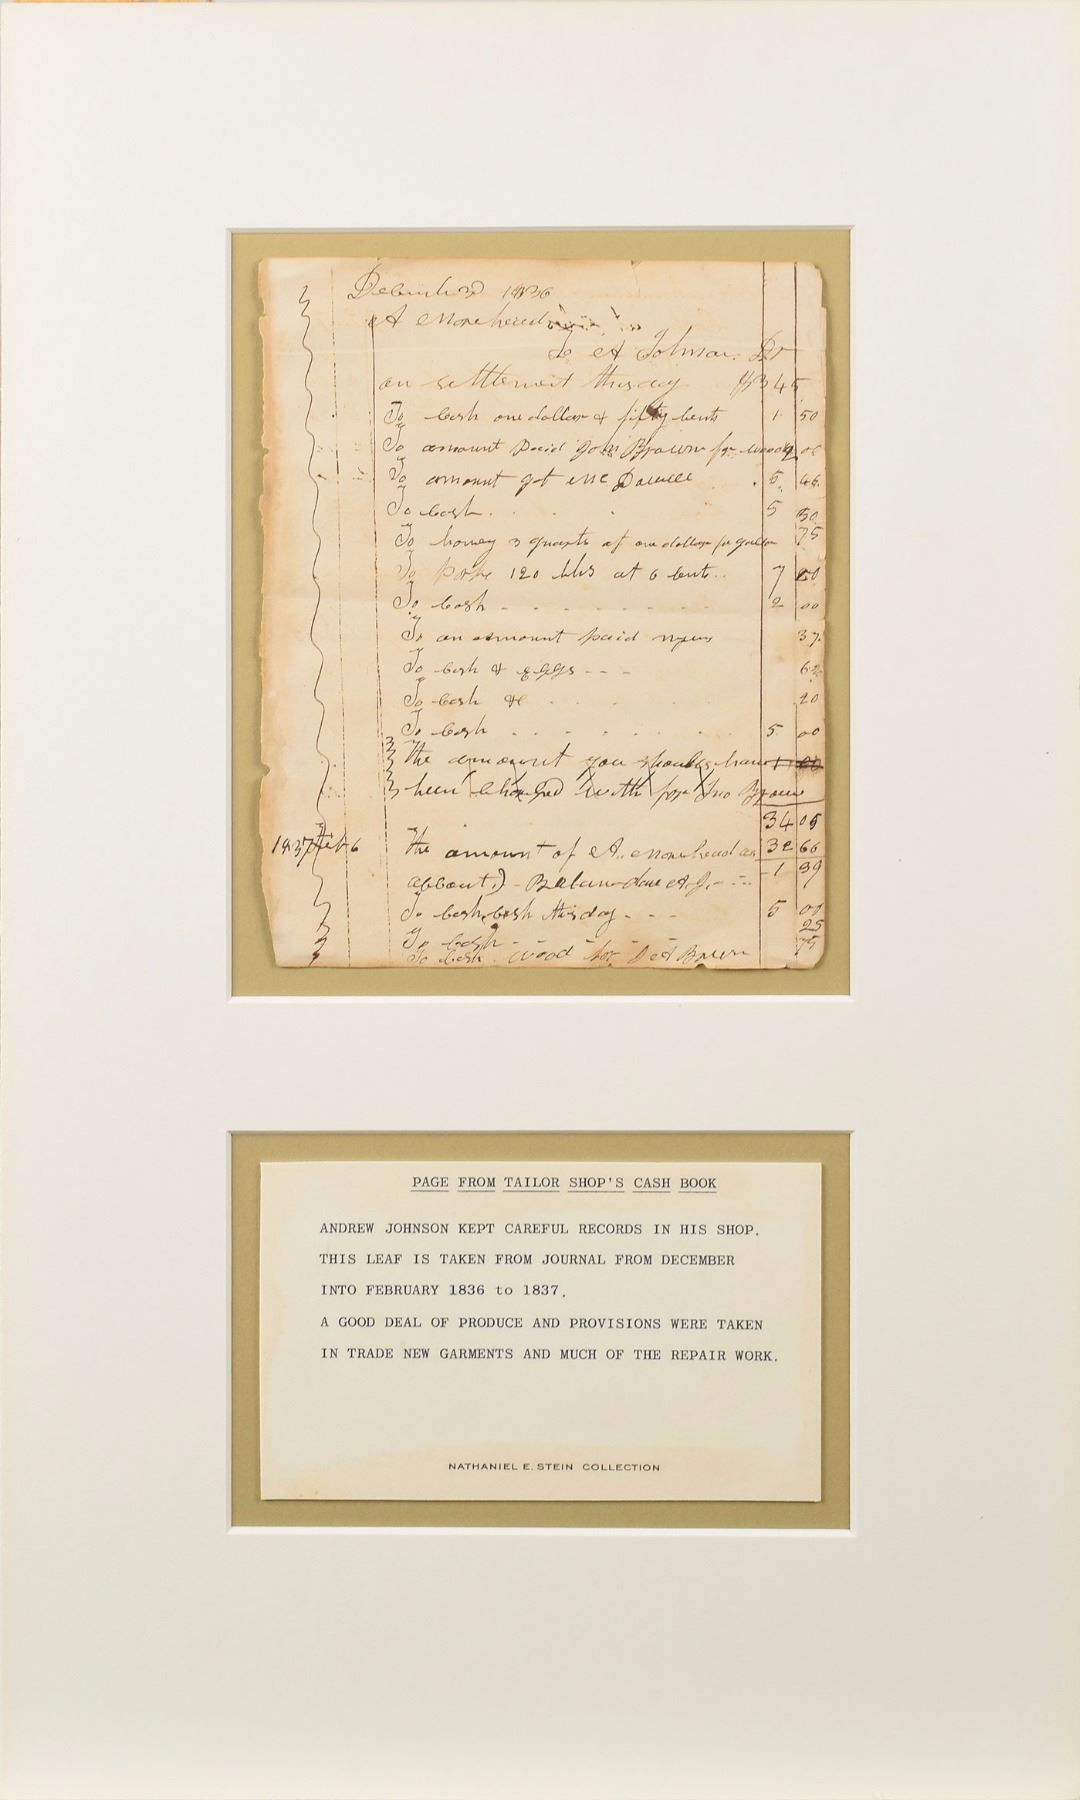 1836
A Morehead
To A Johnson Dr
on settlement this day $3 45
To Cash one dollar & fifty Cents 1 50
To amount paid John Brown for wood
To amount got 5
To Cash . . . 5 50
To honey 3 quarts at one dollar per gallon 75
To Pork 120 lbs at 6 Cents.. 7
To Cash - - - - - - - 2 00
To an amount paid 37
To Cash & Eggs - - - 62
To Cash & . . . 20
To Cash . . . . . . . 5 00
The amount you should have 1
been Charged with for Jno Brown
34 05
1837 Feb 6 The amount of A. Morehead 32 66
Balance due A.J. 1 39
To Cash Cash this day - - - 5 00
To Cash - - - - 25
To Cash wood for Brown 75
PAGE FROM TAILOR SHOP'S CASH BOOK
ANDREW JOHNSON KEPT CAREFUL RECORDS IN HIS SHOP.
THIS LEAF IS TAKEN FROM JOURNAL FROM DECEMBER
INTO FEBRUARY 1836 to 1837.
A GOOD DEAL OF PRODUCE AND PROVISIONS WERE TAKEN
IN TRADE NEW GARMENTS AND MUCH OF THE REPAIR WORK.
NATHANIEL E. STEIN COLLECTION